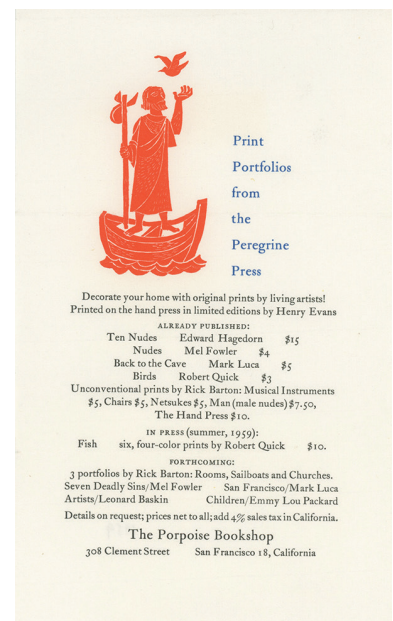 Print
Portfolios
from
the
Peregrine
Press
Decorate your home with original prints by living artists!
Printed on the hand press in limited editions by Henry Evans
ALREADY PUBLISHED:
Ten Nudes Edward Hagedorn $15
Nudes Mel Fowler $4
Back to the Cave Mark Luca $5
Birds Robert Quick $3
Unconventional prints by Rick Barton: Musical Instruments
$5, Chairs $5, Netsukes $5, Man (male nudes) $7.50,
The Hand Press $10.
IN PRESS (summer, 1959):
Fish six, four-color prints by Robert Quick $10.
FORTHCOMING:
3 portfolios by Rick Barton: Rooms, Sailboats and Churches.
Seven Deadly Sins/Mel Fowler San Francisco/Mark Luca
Artists/Leonard Baskin Children/Emmy Lou Packard
Details on request; prices net to all; add 4% sales tax in California.
The Porpoise Bookshop
308 Clement Street San Francisco 18, California